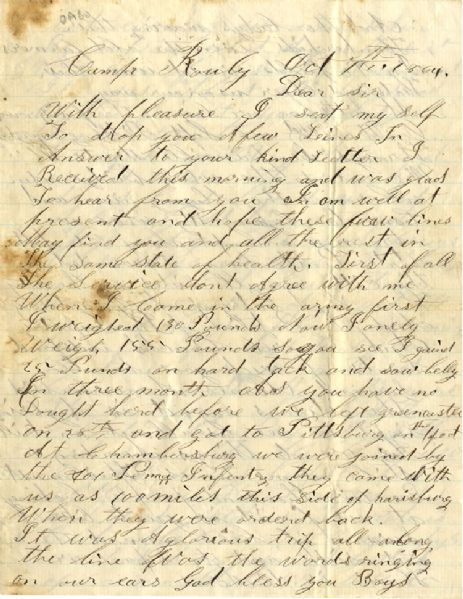 Camp Oct
Dear sir
With pleasure I seat my self
To drop you A few Lines In
Answer to your kind Letter I
Received this morning and was glad
To hear from you I am well at
present and hope these few lines
May find you and all the rest in
the same state of health. First of all
the Service dont Agree with me
When I Come in the army first
I weighed 130 Pounds Now I onely
Weigh 155 Pounds so you see I gaind
25 Pounds on hard tack and sow belly
In three month as you have no
Dought herd before we left greencastle
on 26th and got to Pittsburg on
At Chambersburg we were joined by
the Infentry they come with
us as 100 miles this side of harisburg
When they were orderd back.
It was A glorious trip all along
the line Was the words ringing
on our ears God bless you Boys